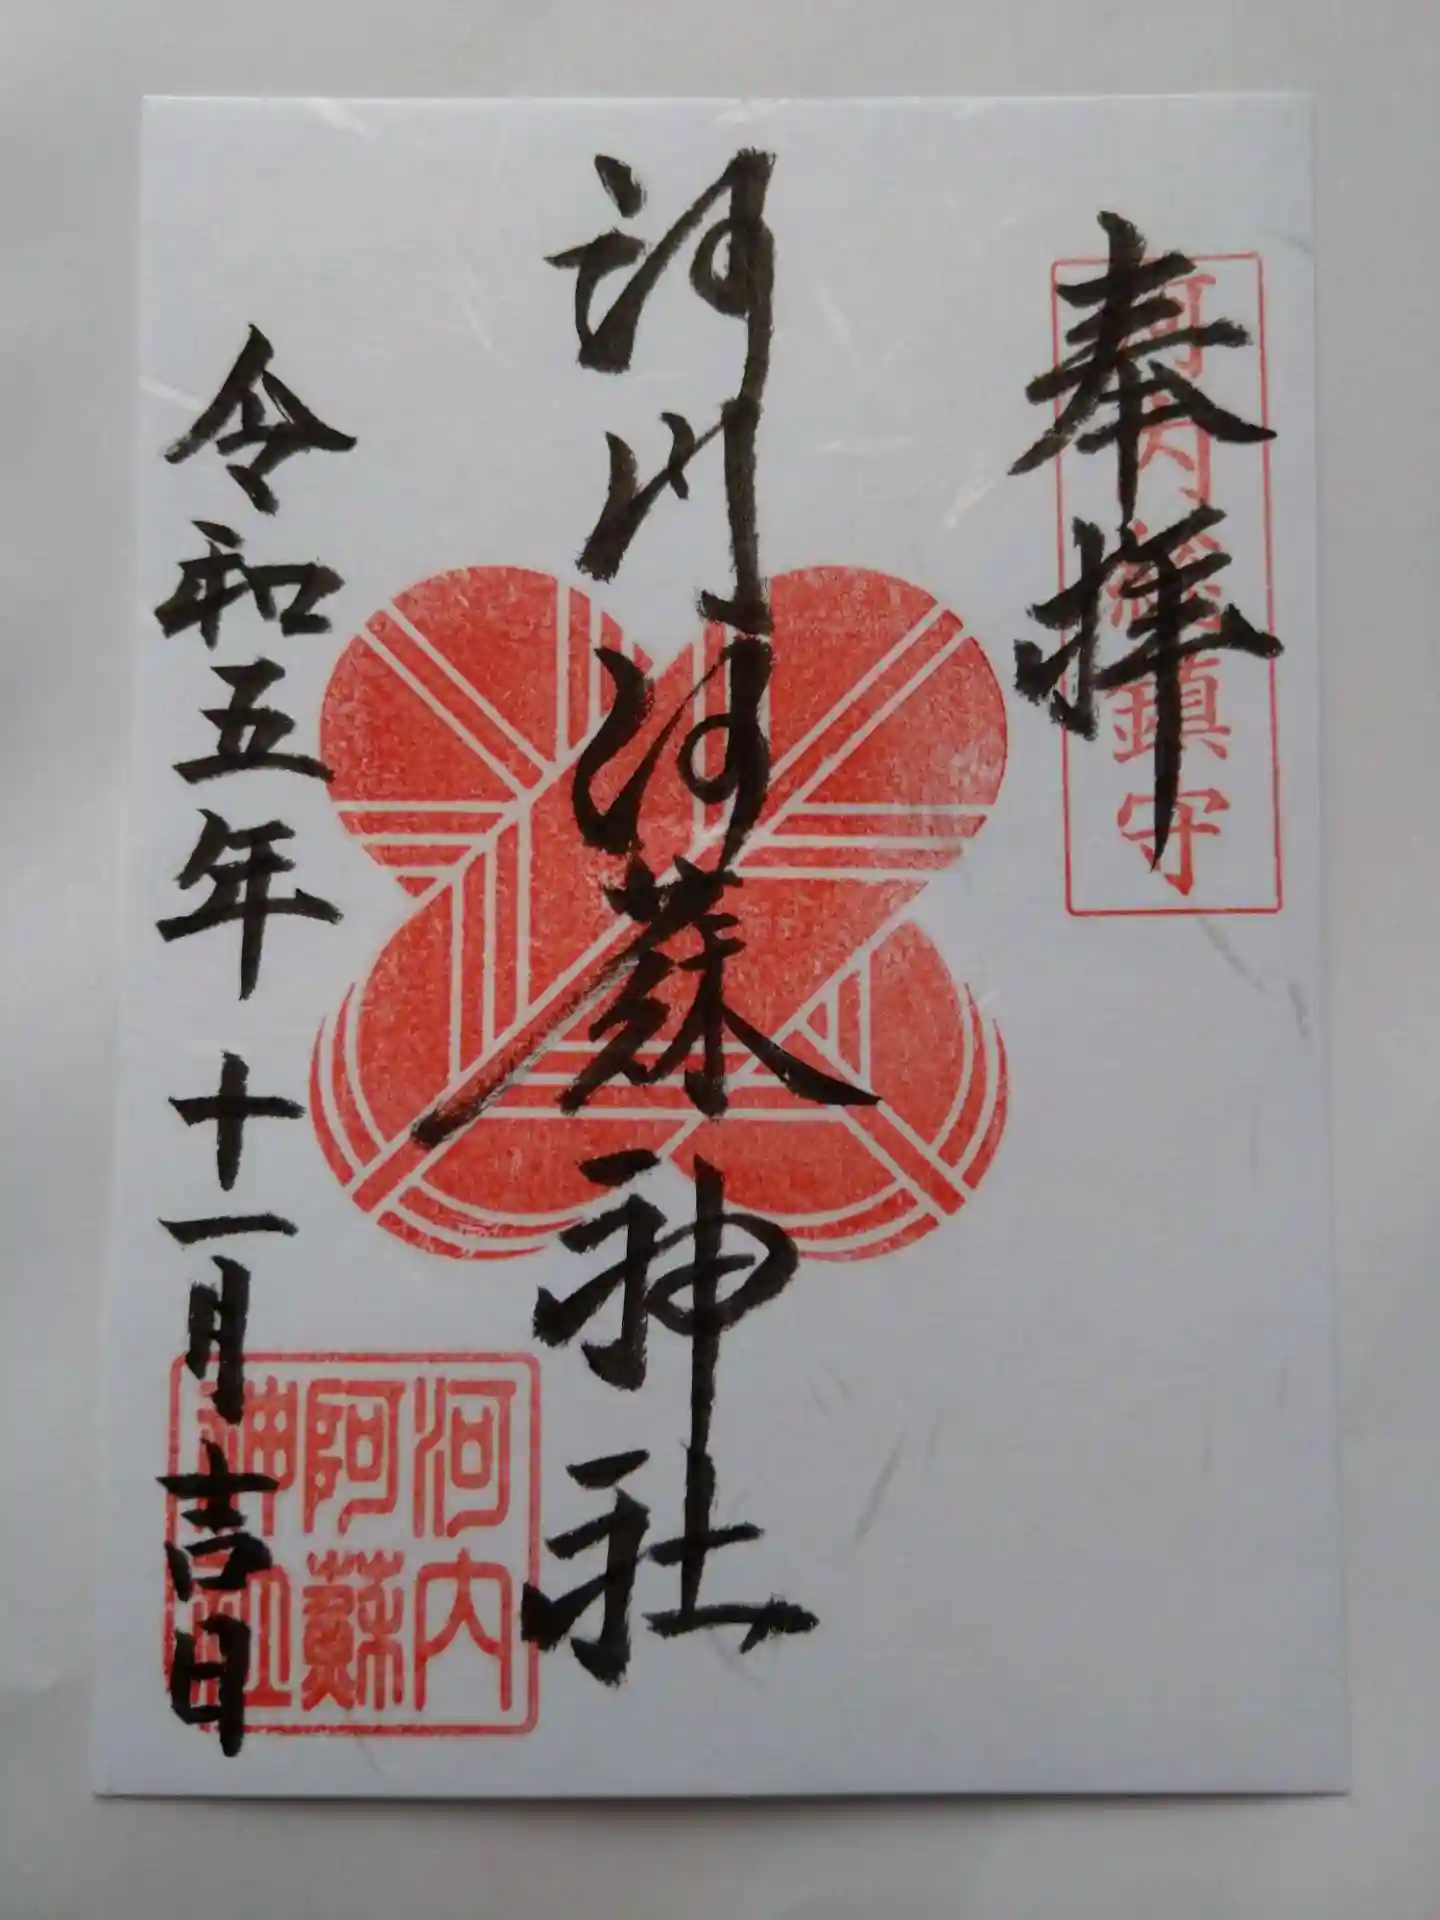 奉拝
河内総鎮守
河内阿蘇神社
令和五年十一月吉日
河内
阿蘇
神社